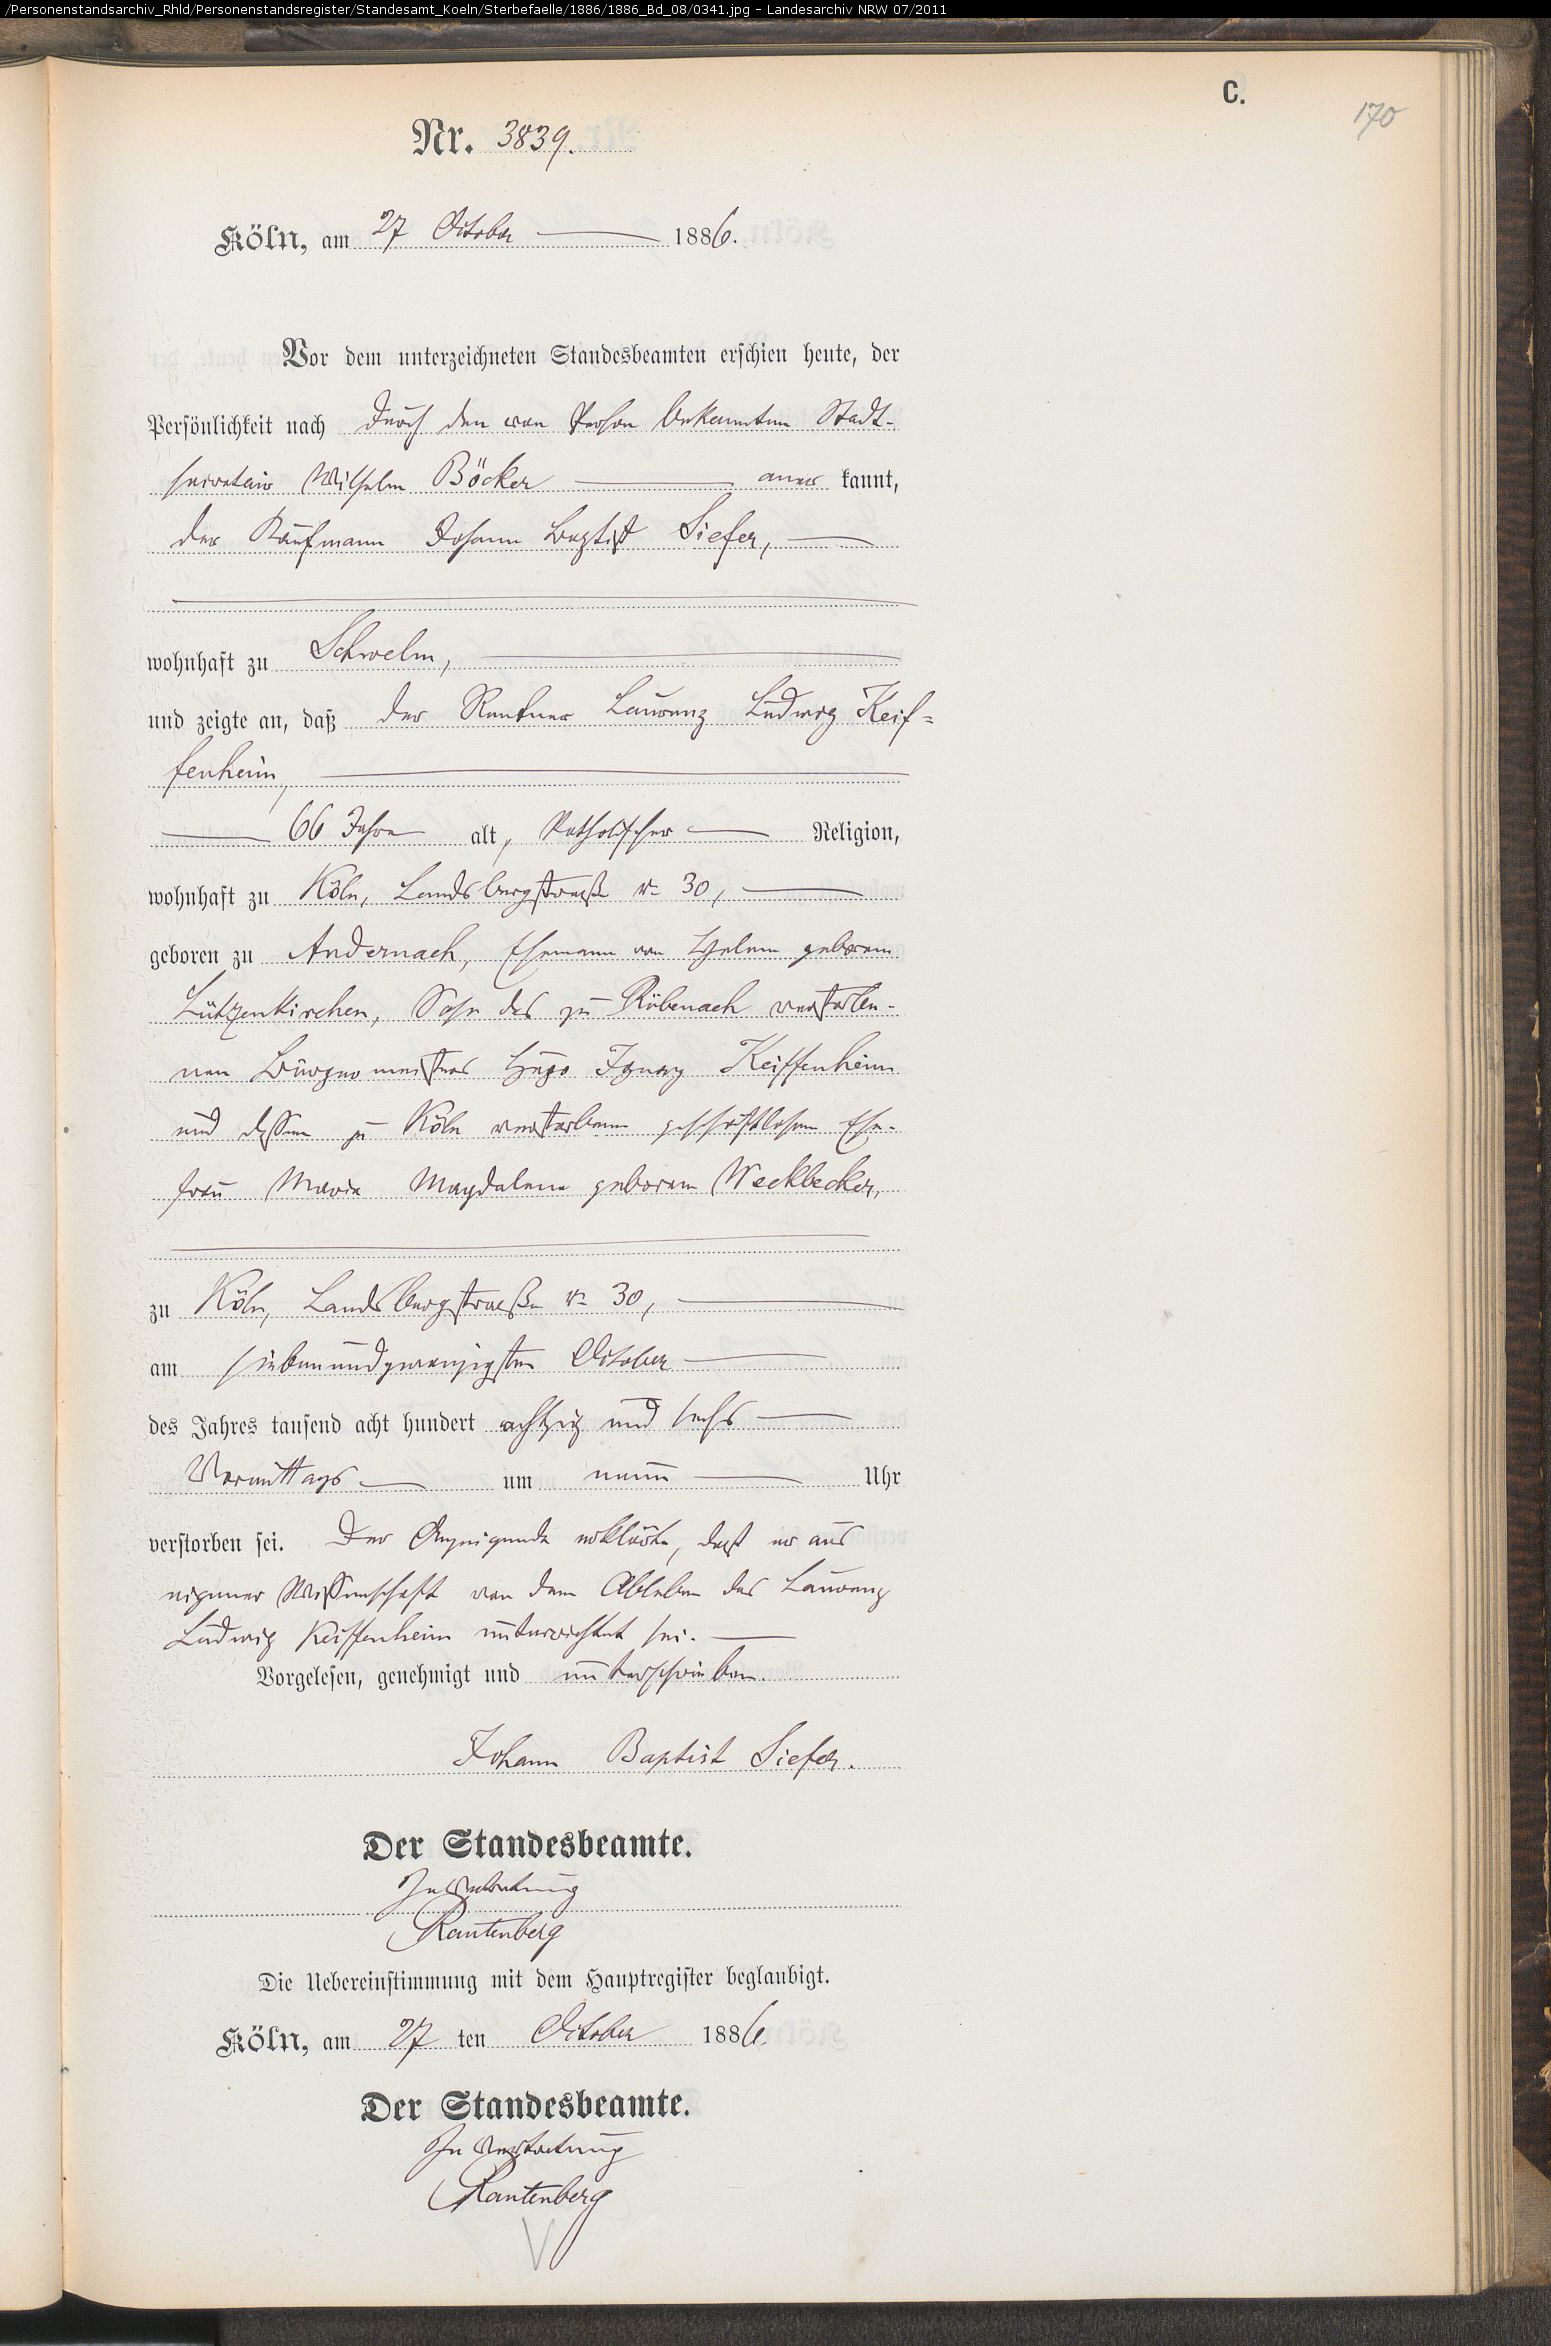 /Personenstandsarchiv_Rhld/Personenstandsregister/Standesamt_Koeln/Sterbefaelle/1886/1886_Bd_08/0341.jpg - Landesarchiv NRW 07/2011
C.
170
Nr. 3839.
Köln, am 27 October 1886.
Vor dem unterzeichneten Standesbeamten erschien heute, der
Persönlichkeit nach durch den von Person bekannten Stadt-
secretair Wilhelm Böcker aner kannt,
der Kaufmann Johann Baptist Siefer,
wohnhaft zu Schwelm,
und zeigte an, daß der Rentner Laurenz Ludwig Keif=
fenheim,
66 Jahre alt, katholischer Religion,
wohnhaft zu Köln, Landsbergstraße No 30,
geboren zu Andernach, Ehemann von Helene geborene
Lützenkirchen, Sohn des zu Rübenach verstorbe-
nen Bürgermeisters Hugo Ignaz Keiffenheim
und dessen zu Köln verstorbenen geschäftlosen Ehe-
frau Maria Magdalena geborene Weckbecker,
zu Köln, Landsbergstraße No 30,
am siebenundzwanzigsten October
des Jahres tausend acht hundert achtzig und sechs
Vormittags um neun Uhr
verstorben sei. Der Anzeigende erklärte, daß er aus
eigener Wissenschaft von dem Ableben des Laurenz
Ludwig Keiffenheim unterrichtet sei.
Vorgelesen, genehmigt und unterschrieben.
Johann Baptist Siefer.
Der Standesbeamte.
In Vertretung
Rautenberg
Die Uebereinstimmung mit dem Hauptregister beglaubigt.
Köln, am 27 ten October 1886.
Der Standesbeamte.
In Vertretung
Rautenberg